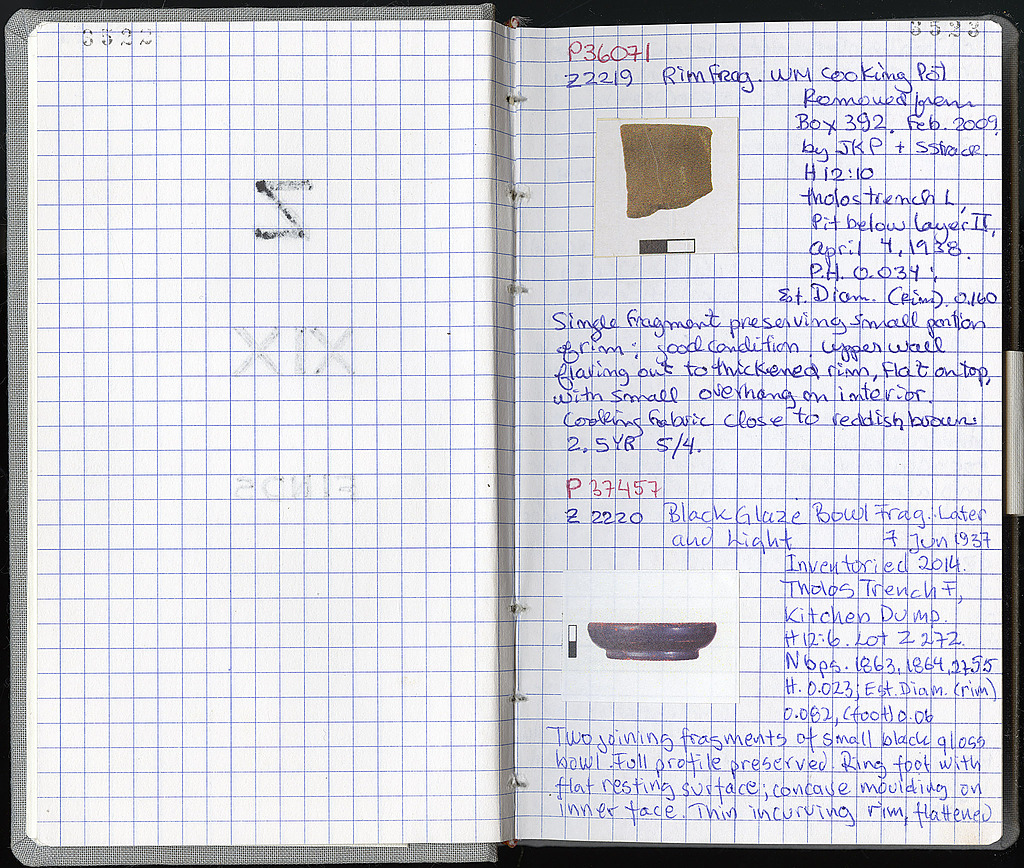 6522
Z
XIX
FINDS
6523
P36071
Z2219 Rim Frag. WM Cooking Pot
Removed from
Box 392. Feb. 2009
by JKP + SStrack.
H12:10
tholos trench L,
Pit below layer II,
April 4, 1938.
P.H. 0.034;
Est. Diam. (rim). 0.160
Single fragment preserving small portion
of rim; good condition. Upper wall
flaring out to thickened rim, flat on top,
with small overhang on interior.
Cooking fabric close to reddish brown:
2.5YR 5/4.
P 37457
Z 2220 Black Glaze Bowl Frag. Later
and Light 7 Jun 1937
Inventoried 2014.
Tholos Trench F,
Kitchen Dump.
H12:6. Lot Z 272.
Nbps. 1863, 1864, 2755
H. 0.023; Est. Diam. (rim)
0.082, (foot) 0.06
Two joining fragments of small black gloss
bowl. Full profile preserved. Ring foot with
flat resting surface; concave moulding on
inner face. Thin incurving rim, flattened